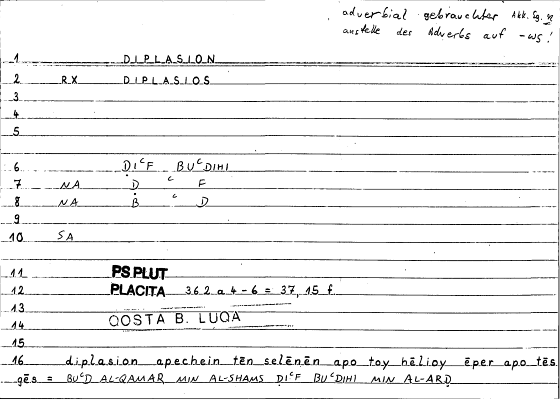 adverbial gebrauchter Akk. Sg. n
anstelle des Adverbs auf -ws!
1 DIPLASION
2 RX DIPLASIOS
3
4
5
6 ḌIᶜF BUᶜDIHI
7 NA Ḍ ᶜ F
8 NA B ᶜ D
9
10 SA
11 PSPLUT
12 PLACITA 362 a 4-6 = 37, 15 f.
13
14 QOSTA B. LUQA
15
16 diplasion apechein tēn selēnēn apo toy hēlioy ēper apo tēs
gēs = BUᶜD AL-QAMAR MIN AL-SHAMS ḌIᶜF BUᶜDIHI MIN AL-ARḌ